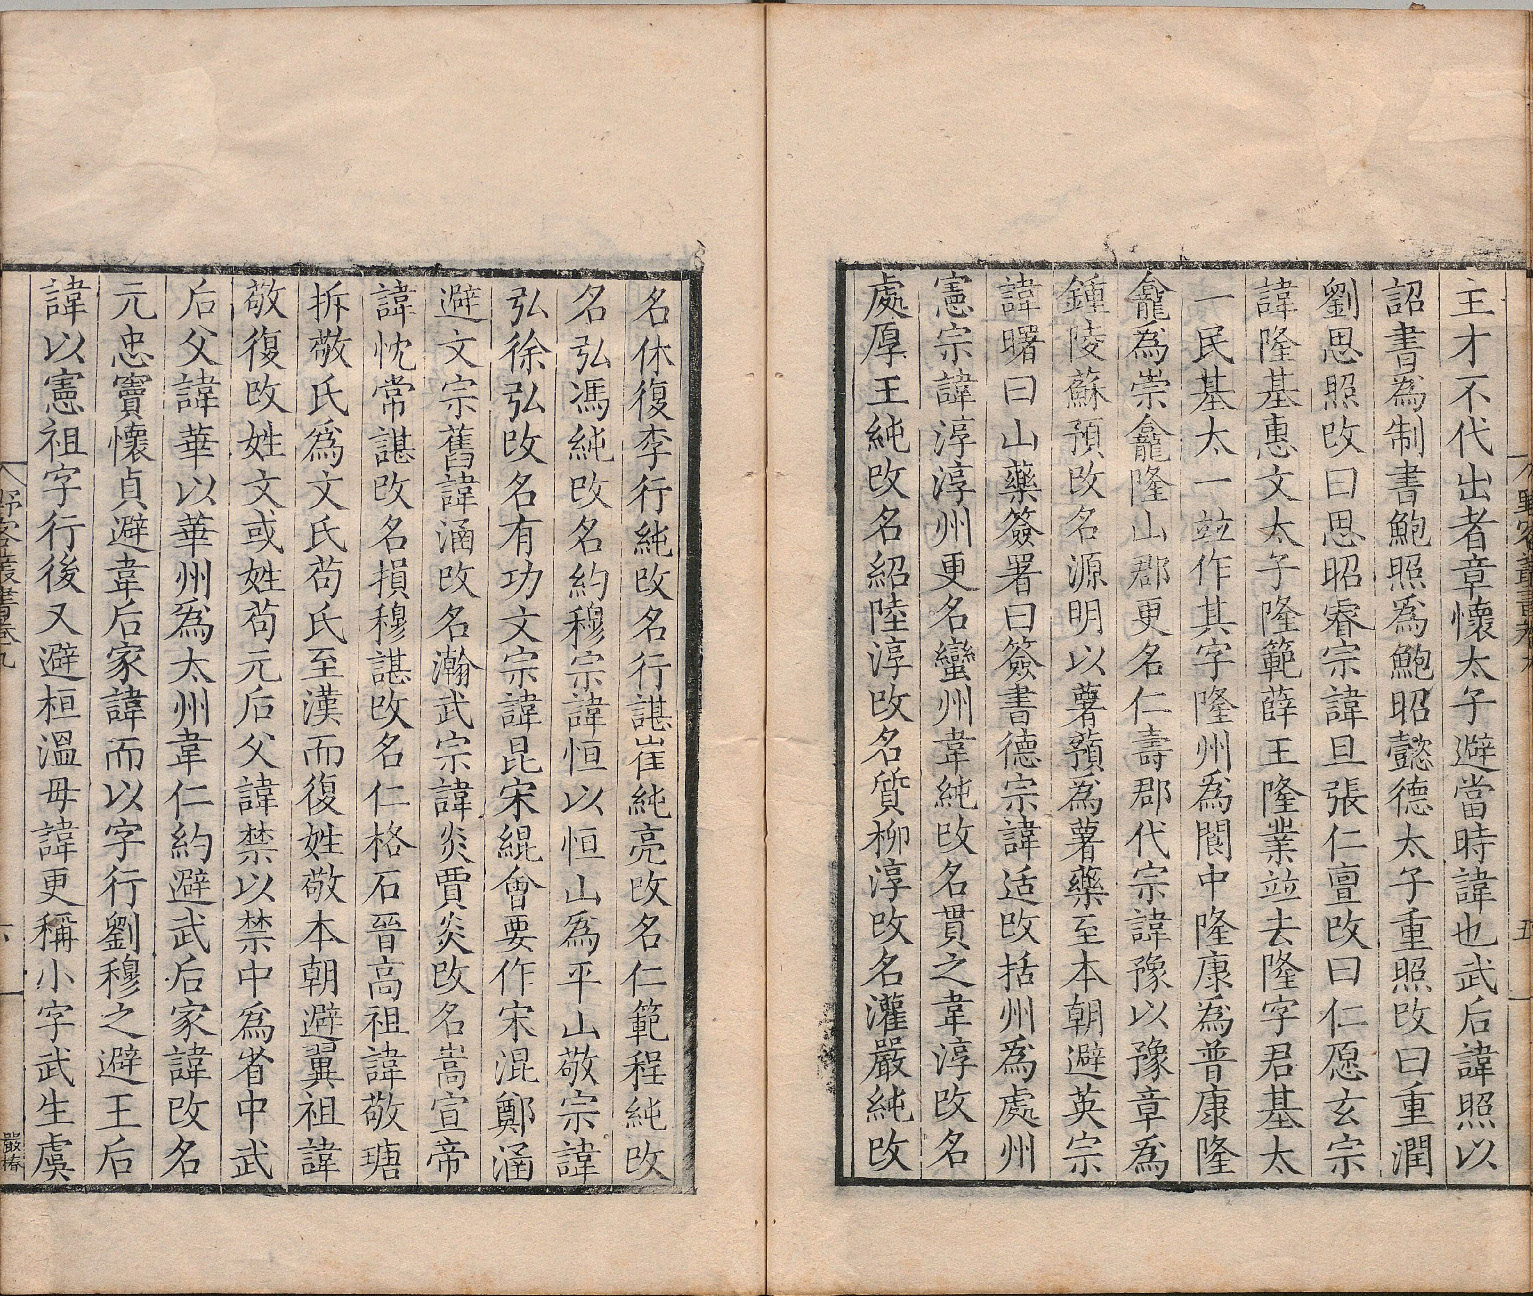 野客叢書卷九
五
王才不代出者章懷太子避當時諱也武后諱照以
詔書為制書鮑照為鮑昭懿德太子重照改曰重潤
劉思照改曰思昭睿宗諱旦張仁亶改曰仁愿玄宗
諱隆基惠文太子隆範薛王隆業並去隆字君基太
一民基太一並作其字隆州為閬中隆康為普康隆
龕為崇龕隆山郡更名仁壽郡代宗諱豫以豫章為
鍾陵蘇預改名源明以薯蕷為薯藥至本朝避英宗
諱曙曰山藥簽署曰簽書德宗諱适改括州為處州
憲宗諱淳淳州更名蠻州韋純改名貫之韋淳改名
處厚王純改名紹陸淳改名質柳淳改名灌嚴純改
名休復李行純改名行諶崔純亮改名仁範程純改
名弘馮純改名約穆宗諱恒以恒山為平山敬宗諱
弘徐弘改名有功文宗諱昆宋緄會要作宋混鄭涵
避文宗舊諱涵改名瀚武宗諱炎賈炎改名嵩宣帝
諱忱常諶改名損穆諶改名仁格石晉高祖諱敬瑭
拆敬氏為文氏苟氏至漢而復姓敬本朝避翼祖諱
敬復改姓文或姓苟元后父諱禁以禁中為省中武
后父諱華以華州為太州韋仁約避武后家諱改名
元忠竇懷貞避韋后家諱而以字行劉穆之避王后
諱以憲祖字行後又避桓溫母諱更稱小字武生虞
野客叢書卷九
六
嚴椿